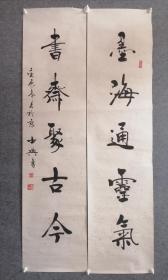 墨海通靈氣
書齋聚古今